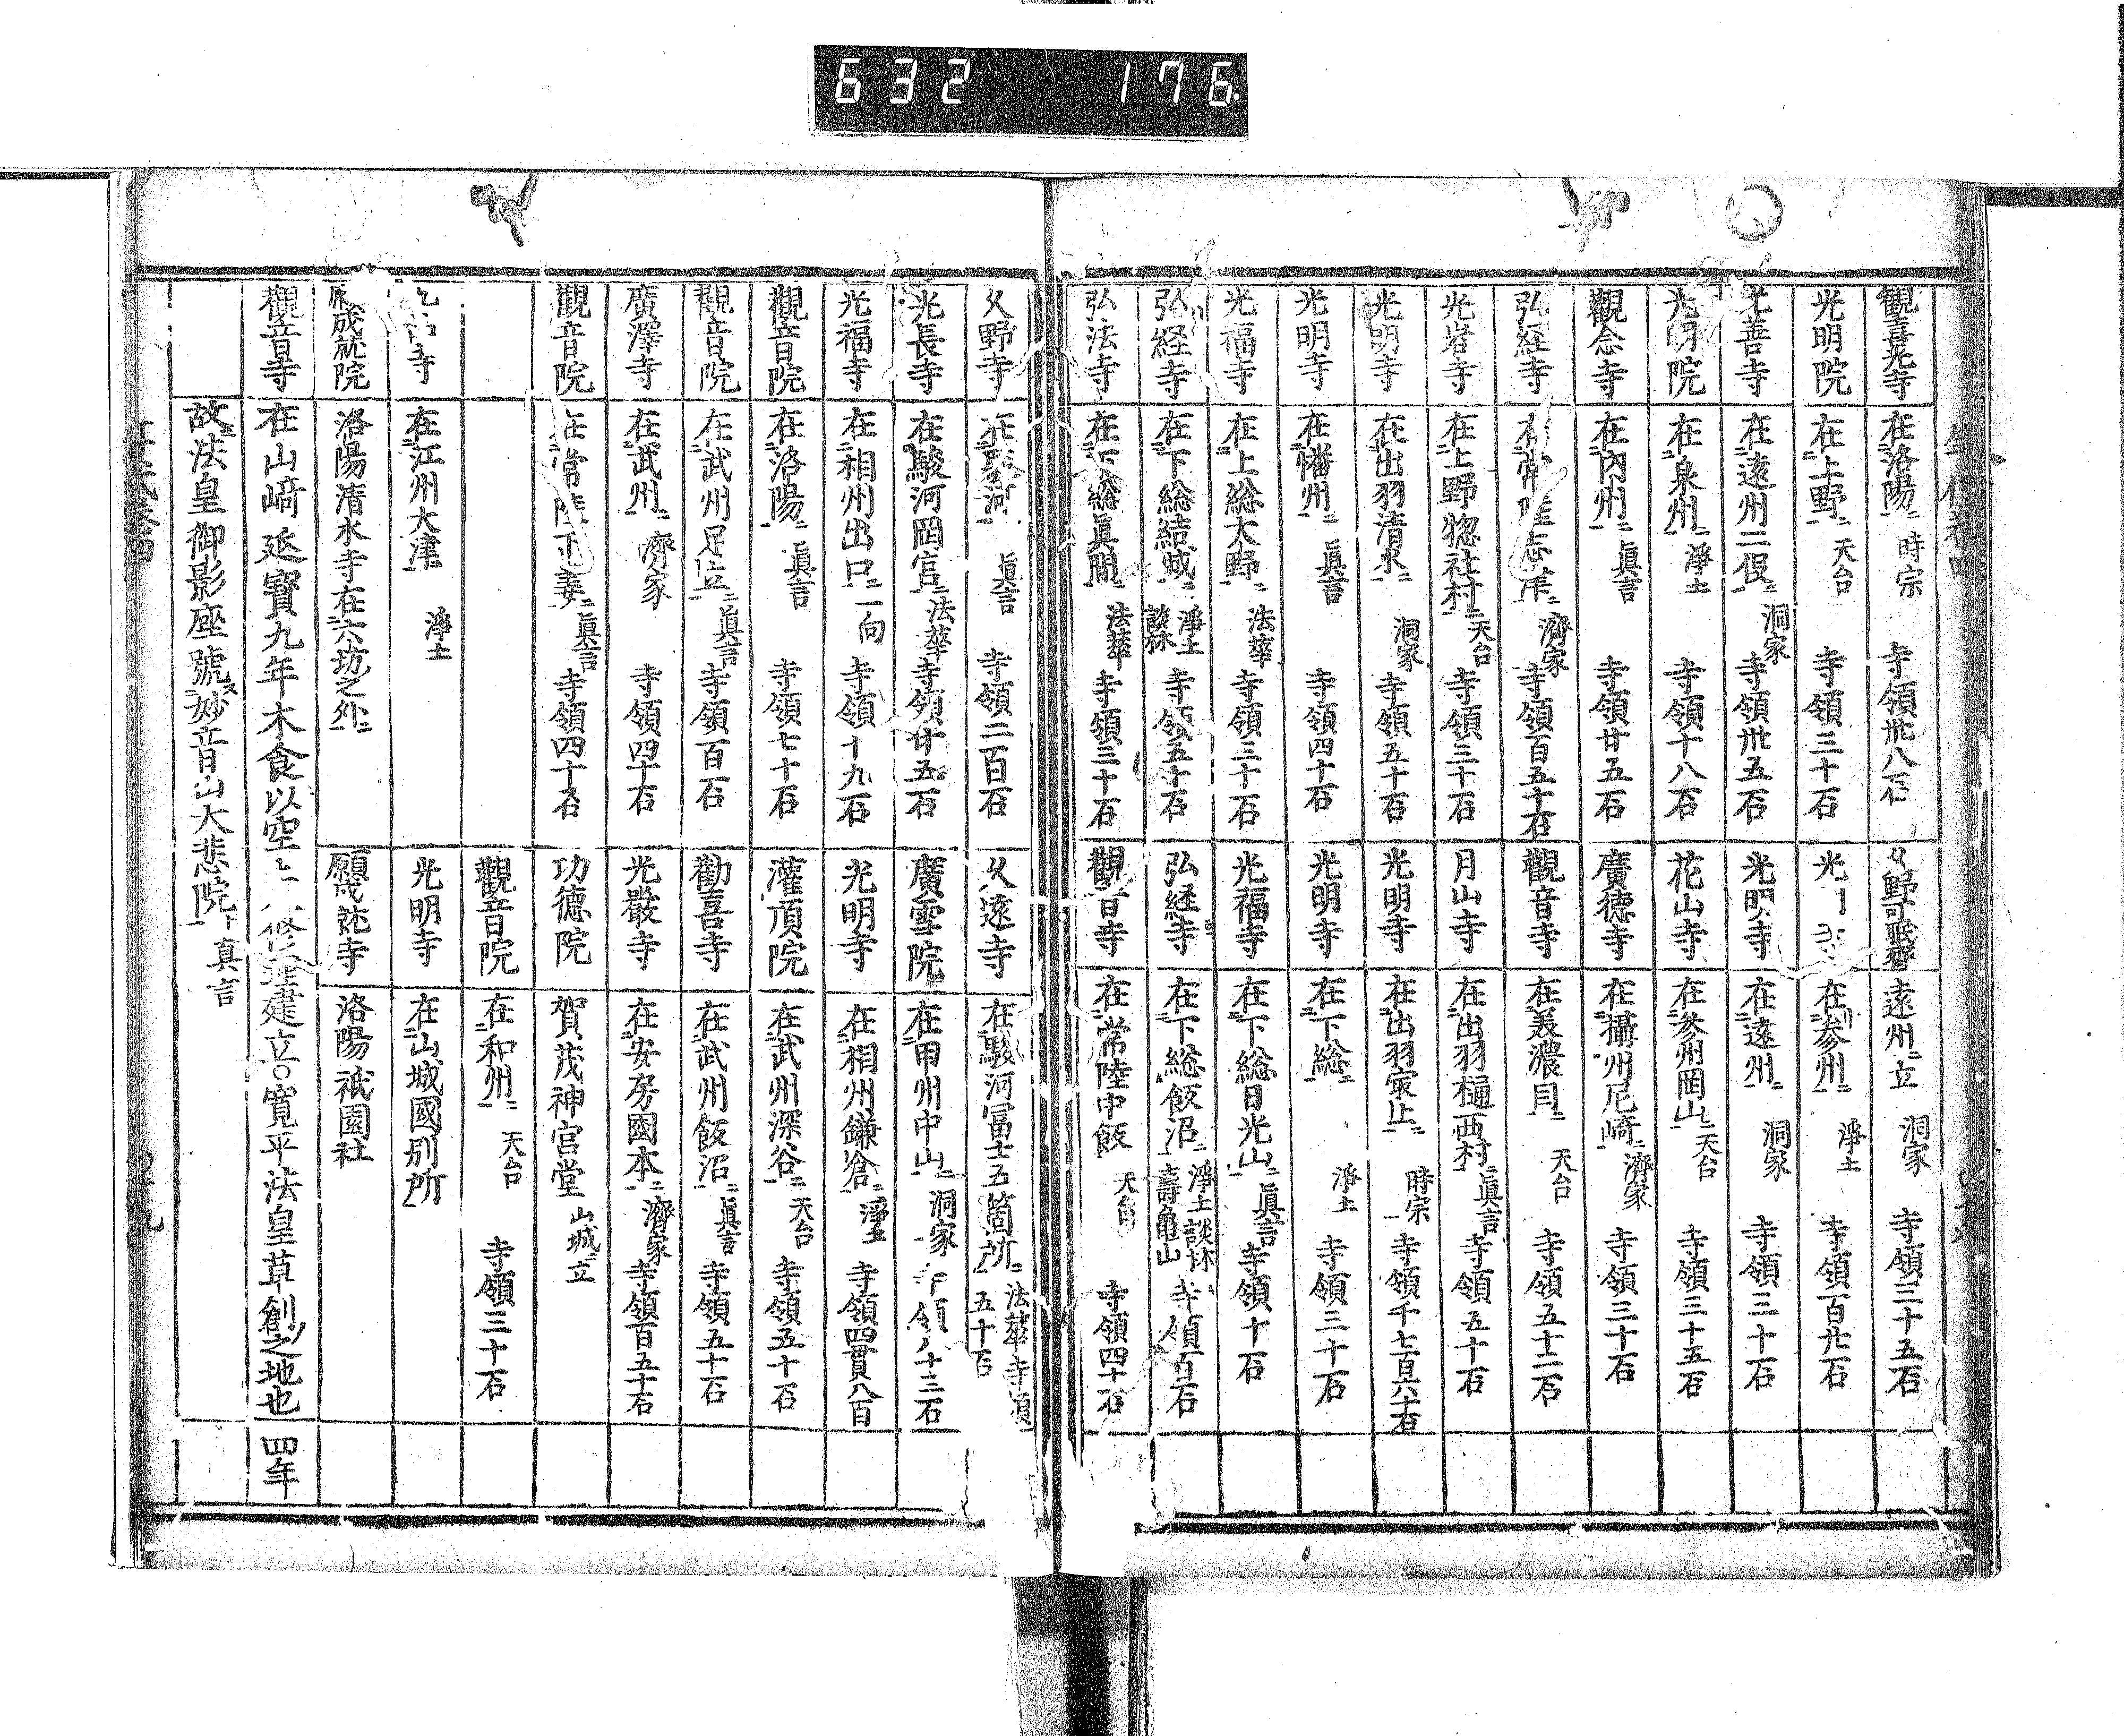 632 176.
観喜光寺 在洛陽 時宗 寺領卅八石
久野可眠齋 遠州立 洞家 寺領三十五石
光明院 在上野 天台 寺領三十石
光 在参州 淨土 寺領百廿石
光善寺 在遠州二俣 洞家 寺領卅五石
光明寺 在遠州 洞家 寺領三十石
光明院 在泉州 淨土 寺領十八石
花山寺 在参州岡山 天台 寺領三十五石
觀念寺 在內州 眞言 寺領廿五石
廣徳寺 在攝州尼崎 濟家 寺領三十石
弘経寺 在常陸志 濟家 寺領百五十石
觀音寺 在美濃 天台 寺領五十二石
光岩寺 在上野惣社村 天台 寺領三十石
月山寺 在出羽樋西村 眞言 寺領五十石
光明寺 在出羽清水 洞家 寺領五十石
光明寺 在出羽家止 時宗 寺領千七百六十石
光明寺 在幡州 眞言 寺領四十石
光明寺 在下総 淨土 寺領三十石
光福寺 在上総大野 法華 寺領三十石
光福寺 在下総日光山 眞言 寺領十石
弘経寺 在下総結城 淨土談林 寺領五十石
弘経寺 在下総飯沼 淨土談林壽亀山 寺領百石
弘法寺 在下総眞間 法華 寺領三十石
觀音寺 在常陸中飯 天台 寺領四十石
久野寺 在駿河 眞言 寺領二百石
久遠寺 在駿河冨士五箇所 法華寺領五十石
光長寺 在駿河岡宮 法華 寺領廿五石
廣雲院 在甲州中山 洞家 寺領八十三石
光福寺 在相州出口 一向 寺領十九石
光明寺 在相州鎌倉 淨土 寺領四貫八百
觀音院 在洛陽 眞言 寺領七十石
灌頂院 在武州深谷 天台 寺領五十石
觀音院 在武州足立 眞言 寺領百石
勸喜寺 在武州飯沼 眞言 寺領五十石
廣澤寺 在武州 濟家 寺領四十石
光嚴寺 在安房國本 濟家 寺領百五十石
觀音院 在常陸下妻 眞言 寺領四十石
功德院 賀茂神宮堂 山城立
觀音院 在和州 天台 寺領三十石
寺 在江州大津 淨土
光明寺 在山城國別所
成就院 洛陽清水寺在六坊之外
願成就寺 洛陽祇園社
觀音寺 在山﨑延寳九年木食以空 修理建立○寛平法皇草創之地也 四年
故法皇御影座號妙音山大悲院 真言